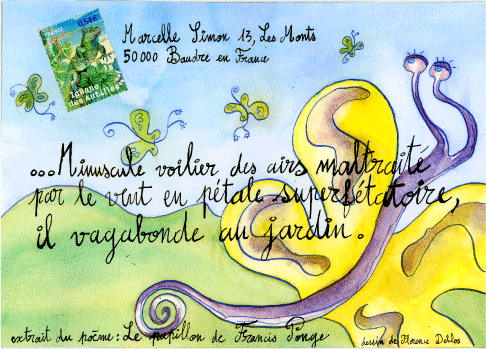 0,54€
Iguane
des Antilles
Marcelle Simon 13, Les Monts
50000 Baudre en France
...Minuscule voilier des airs maltraité
par le vent en pétale superfétatoire,
il vagabonde au jardin.
extrait du poème: Le papillon de Francis Ponge
dessin de Florence Dellos